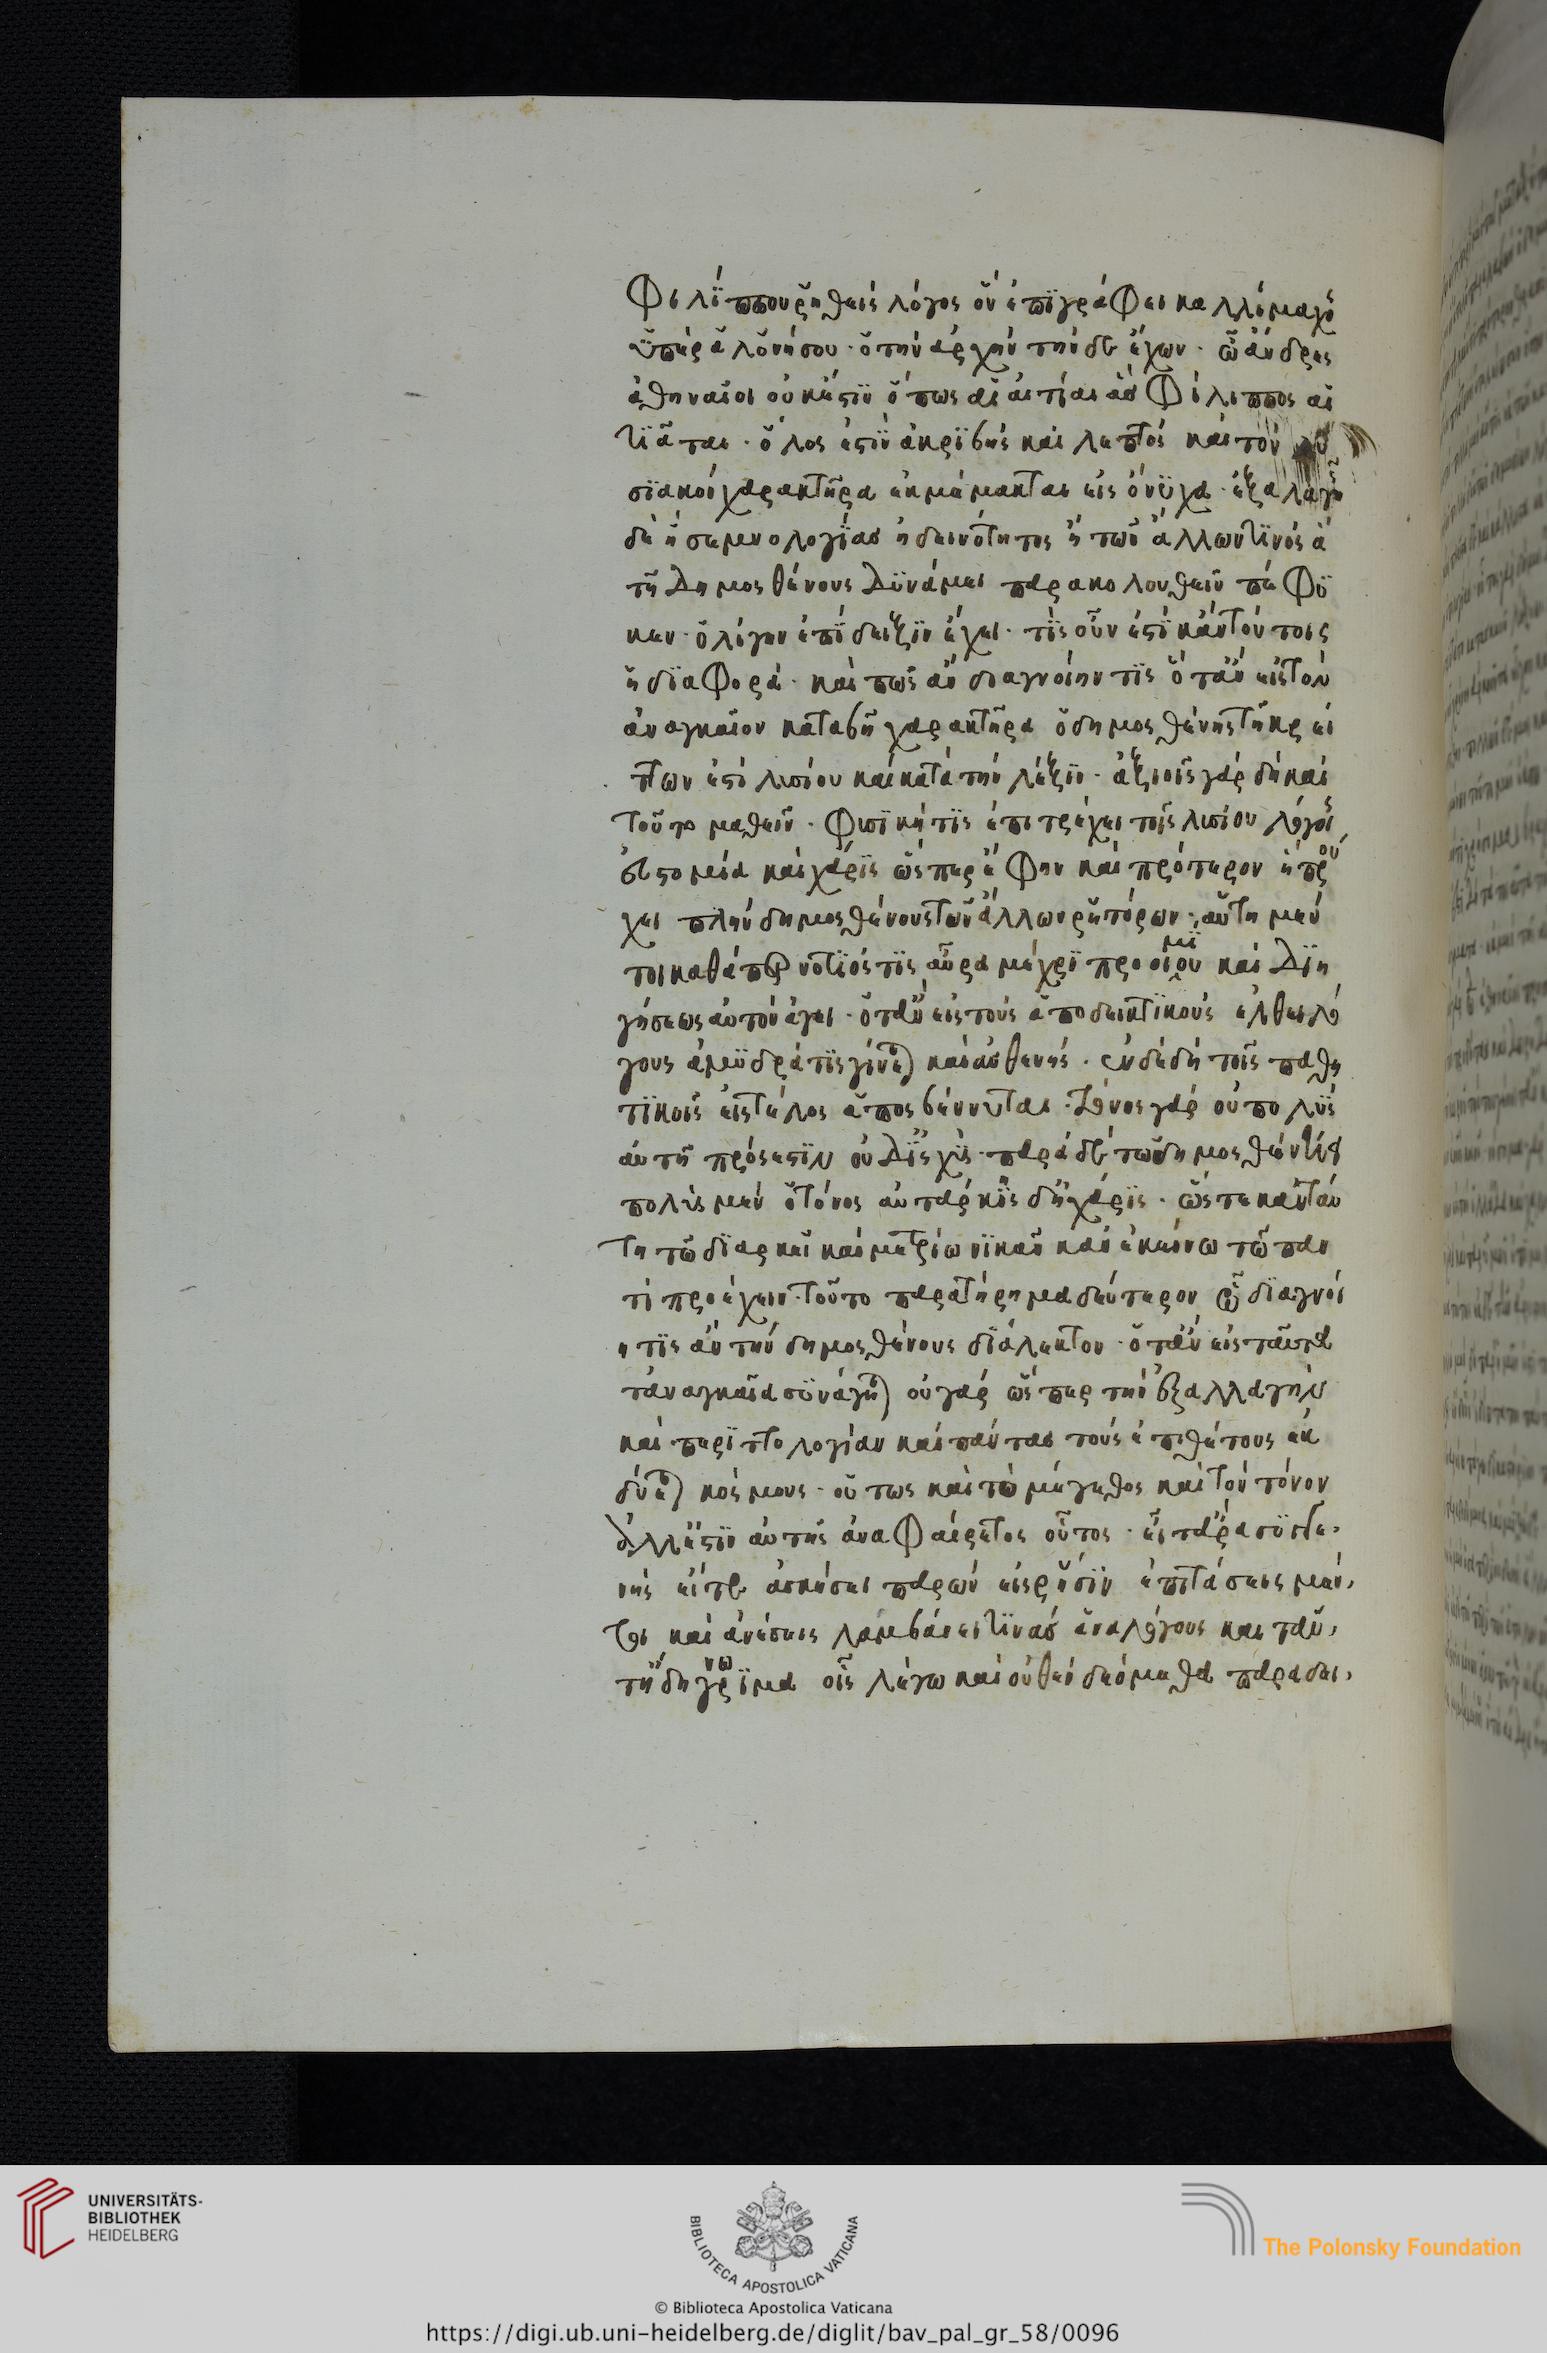 Φιλίππου ῥηθεὶς λόγος ὃν ἐπιγράφει καλλίμαχος
ὑπὲρ ἁλονήσου· ὁ τὴν ἀρχὴν τήνδε ἔχων· ὦ ἄνδρες
ἀθηναῖοι οὐκ ἔστιν ὅπως αἱ αἰτίαι ἃς Φίλιππος αἰ
τιᾶται· ὅλος ἐστὶν ἀκριβὴς καὶ λεπτὸς καὶ τὸν λυ
σιακὸν χαρακτῆρα ἐκμέμακται εἰς ὄνυχα· ἐξαλαγῆς
δὲ ἢ σεμνολογίας ἢ δεινότητος ἢ τῶν ἄλλων τινὸς ἃ
τῇ Δημοσθένους Δυνάμει παρακολουθεῖν πέφυ
κεν· ὀλίγην ἐπίδειξιν ἔχει· τίς οὖν ἐστὶ κἀν τούτοις
ἡ διαφορά· καὶ πῶς ἂν διαγνοίην τις ὅταν εἰς τὸν
ἀναγκαῖον καταβῇ χαρακτῆρα ὁ δημοσθένης τῇ κρεί
ττων ἐστὶ λυσίου καὶ κατὰ τὴν λέξιν· ἀξιοῖς γὰρ δὴ καὶ
τοῦτο μαθεῖν· Φυσική τις ἐπιτρέχει τοῖς λυσίου λόγοις
εὐστομία καὶ χάρις ὥσπερ ἔφην καὶ πρότερον ᾗ πρού
χει πλὴν δημοσθένους τῶν ἄλλων ῥητόρων· αὕτη μέν
τοι καθάπερ νότιός τις αὔρα μέχρι προοιμίου καὶ Διη
γήσεως αὐτὸν ἄγει· ὅταν εἰς τοὺς ἀποδεικτικοὺς ἔλθει λό
γους ἀμυδρά τις γίνεται καὶ ἀσθενής· ἐν δὲ δὴ τοῖς παθη
τικοῖς εἰς τέλος ἀποσβέννυται· τόνος γὰρ οὐ πολὺς
αὐτῇ πρόσεστιν οὐδ' ἰσχύς· παρὰ δὲ τῷ δημοσθένει
πολὺς μὲν ὁ τόνος αὐτάρκης δ' ἡ χάρις· ὥστε κἀν ταύ
τη τῷ διαρκεῖ καὶ μετρίω νικᾶν κἀν ἐκείνω τῷ παν
τὶ προέχειν· τοῦτο παρατήρημα δεύτερον ᾧ διαγνοί
η τις ἂν τὴν δημοσθένους διάλεκτον· ὅταν εἰς ταῦτα
τἀναγκαῖα συνάγηται οὐ γὰρ ὥσπερ τὴν ἐξαλλαγὴν
καὶ περιττολογίαν καὶ πάντας τοὺς ἐπιθέτους ἐκ
δύεται κόσμους· οὕτως καὶ τὸ μέγεθος καὶ τὸν τόνον
ἀλλ' ἔστιν αὐτῆς ἀναφαίρετος οὗτος· εἴτ' ἄρα συγγε
νὴς εἴτε ἀσκήσει παρὼν εἰς ῥύσιν ἐπιτάσεις μέν
τοι καὶ ἀνέσεις λαμβάνει τινὰς ἀναλόγους καὶ ταύ
τη δὴ γνώριμα οἷς λέγω καὶ οὐθὲν δεόμεθα παραδει
UNIVERSITÄTS-
BIBLIOTHEK
HEIDELBERG
BIBLIOTECA APOSTOLICA VATICANA
The Polonsky Foundation
© Biblioteca Apostolica Vaticana
https://digi.ub.uni-heidelberg.de/diglit/bav_pal_gr_58/0096